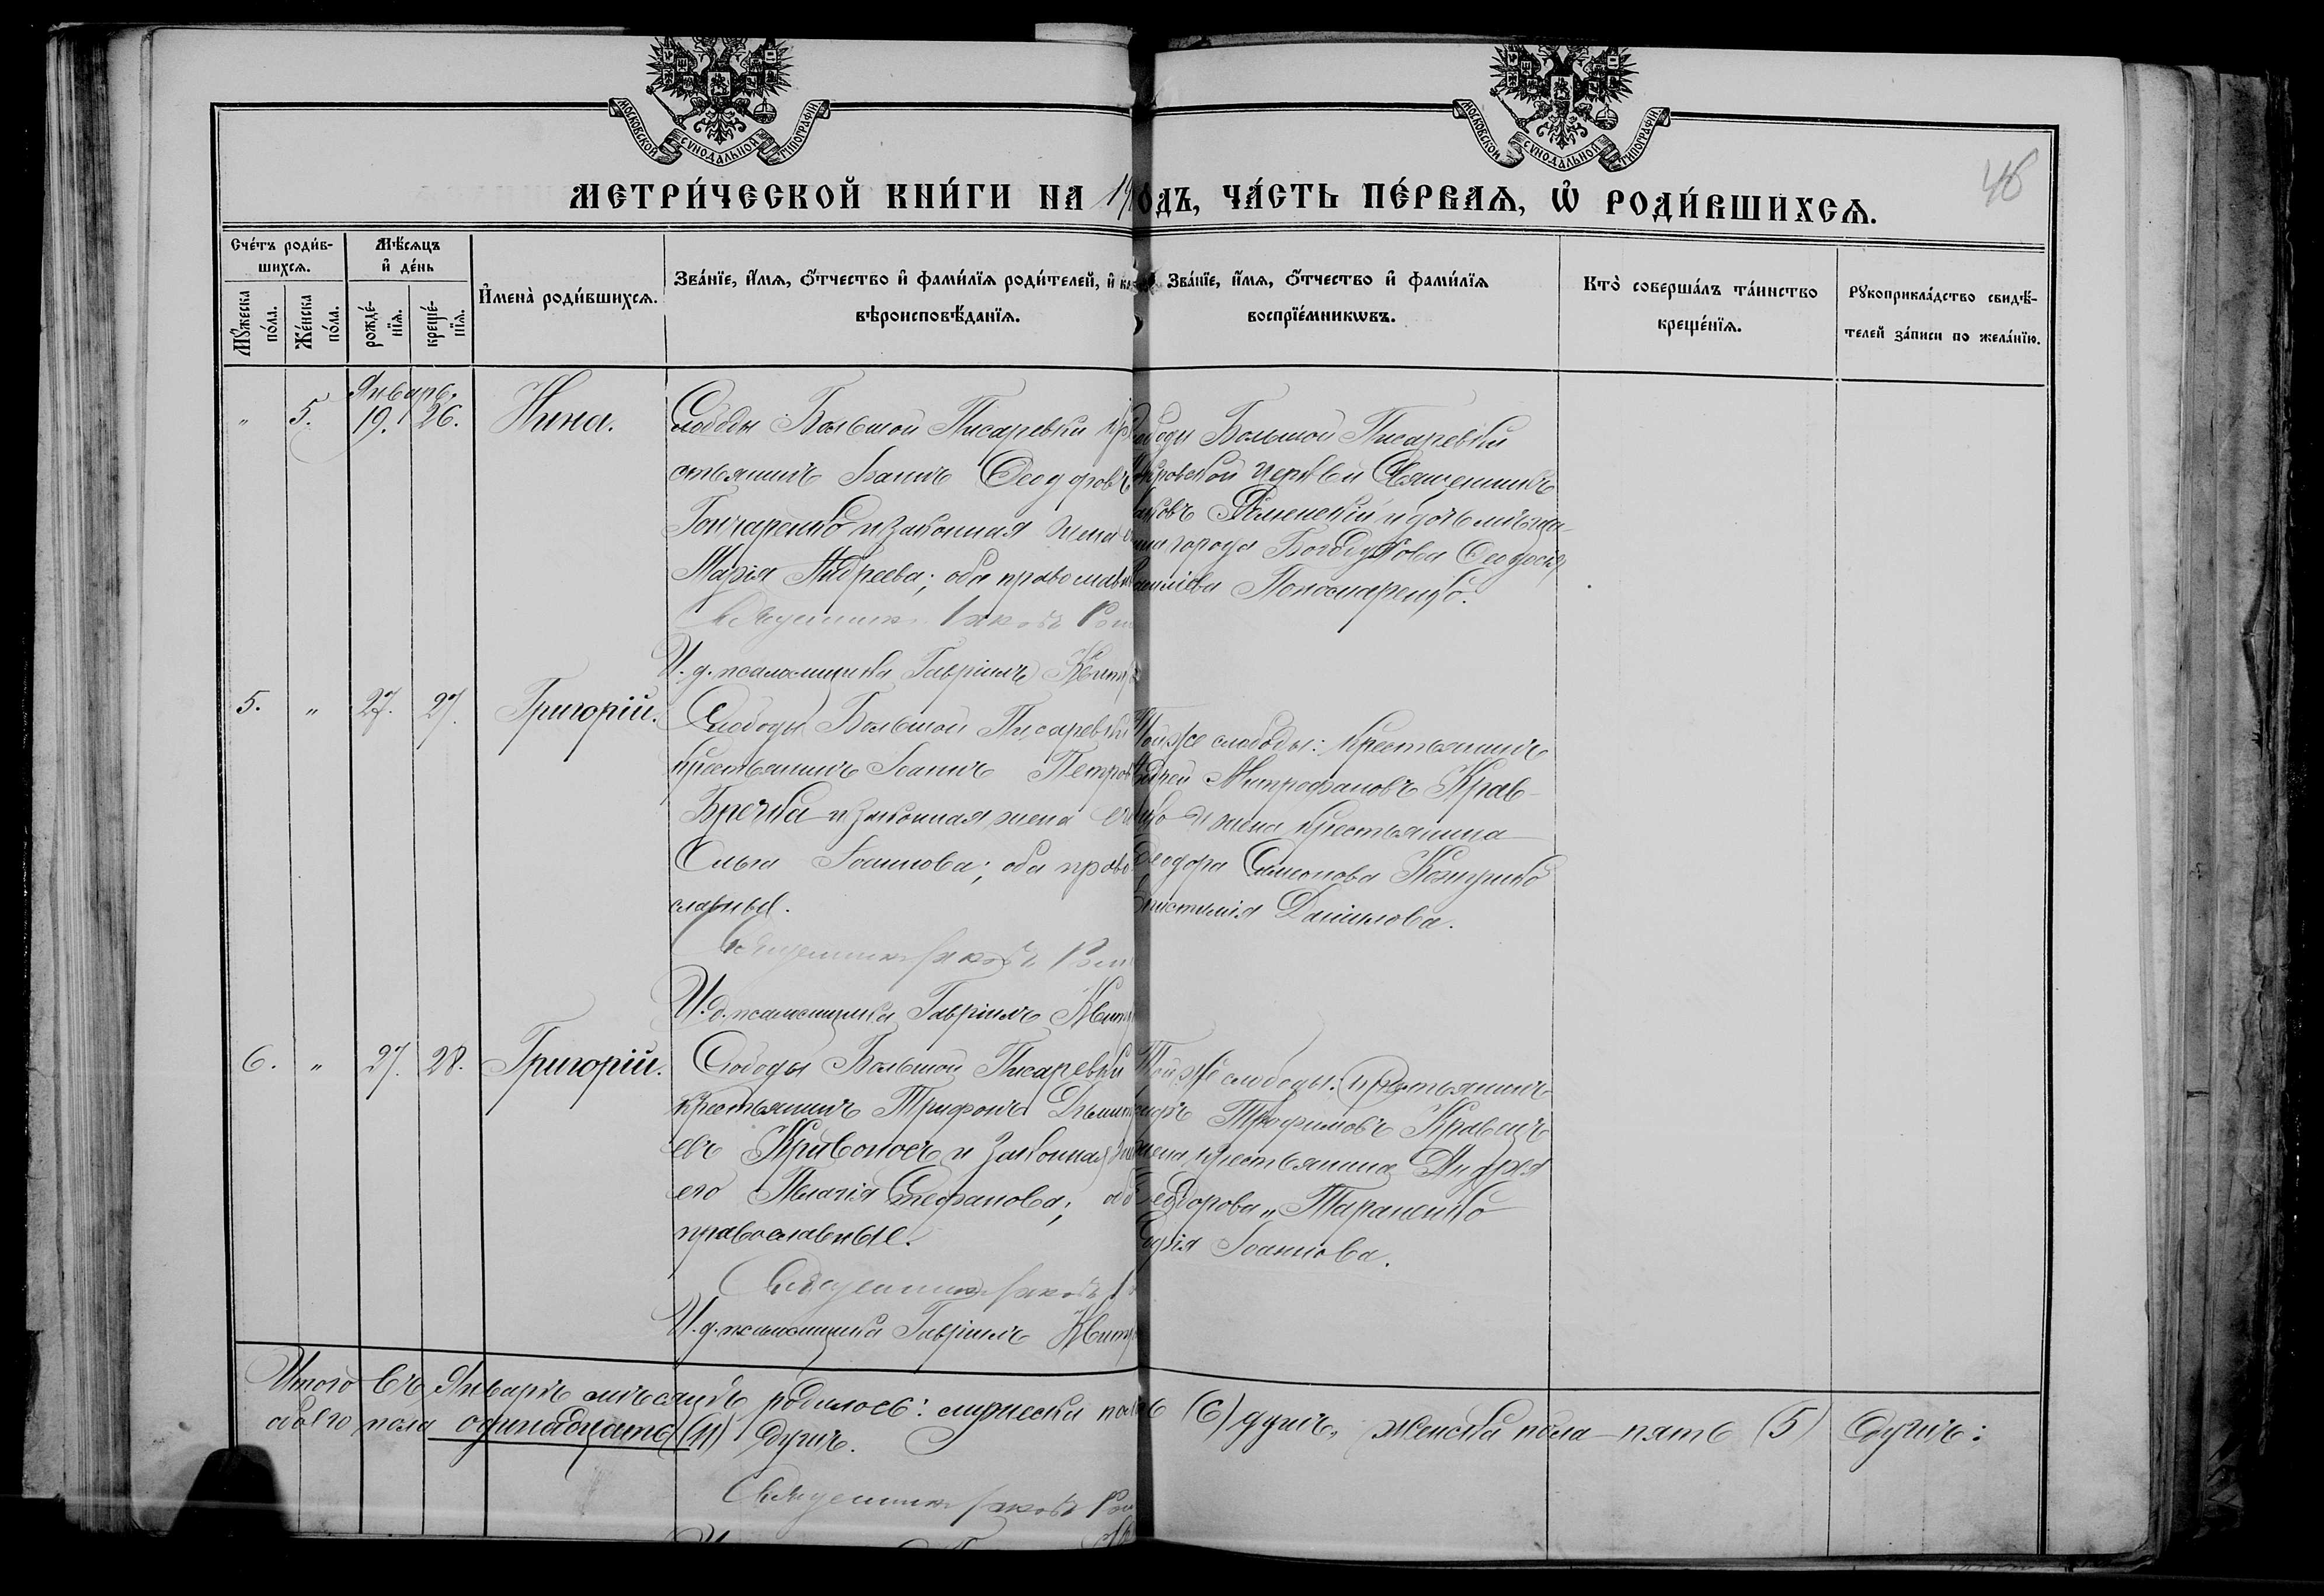 МОСКОВСКОЙ СѴНОДАЛЬНОЙ ТИПОГРАФІИ
МОСКОВСКОЙ СѴНОДАЛЬНОЙ ТИПОГРАФІИ
48
МЕТРИ́ЧЕСКОЙ КНИ́ГИ НА 19
ОДЪ, ЧА́СТЬ ПЕ́РВАѦ, Ѡ РОДИ́ВШИХСѦ.
Сче́тъ роди́в-
шихсѧ.
Мѣ́сѧцъ
и҆ де́нь
Мꙋ́жеска
по́ла.
Же́нска
по́ла.
рожде́-
нїѧ.
креще́-
нїѧ.
И҆мена̀ роди́вшихсѧ.
Зва́нїе, и҆́мѧ, ѻ҆́тчество и҆ фами́лїѧ роди́телей, и҆
вѣроисповѣ́данїѧ.
Зва́нїе, и҆́мѧ, ѻ҆́тчество и҆ фами́лїѧ
воспрїе́мникѡвъ.
Кто̀ соверша́лъ та́инство
креще́нїѧ.
Рꙋкоприкла́дство свидѣ́-
телей за́писи по жела́нїю.
Январь.
" 5. 19. 26. Нина.
Слободы Большой Писаревки кре
стьянинъ Іоаннъ Ѳеодоровъ
Гончаренко и законная жена
Марія Андреева; оба православ
Священникъ Іаковъ
И. д. псаломщика Гавріилъ Квит
Слободы Большой Писаревки
церкви Священникъ
аковъ и дочь мѣща-
нина города Богодухова Ѳеодосія
5. " 27. 27. Григорій.
Слободы Большой Писаревки
крестьянинъ Іоаннъ Петров
Бречка и законная жена его
Ольга Іоаннова; оба право
славные.
Священникъ Іаковъ
И. д. псаломщика Гавріилъ Квит
Той же слободы: крестьянинъ
Андрей Митрофановъ Крав-
и жена крестьянина
Ѳеодора Симеонова
Епистимія Даниилова.
6. " 27. 28. Григорій.
Слободы Большой Писаревки
крестьянинъ Трифонъ Димит
евъ Кривоносъ и законная же
его Пелагія Стефанова; об
православные.
Священникъ Іаковъ
И. д. псаломщика Гавріилъ Квит
Той же слободы: крестьянинъ
Трофимовъ Кравецъ
жена крестьянина Андрея
Ѳеодорова Тараненко
Іоаннова.
Итого въ Январѣ мѣсяцѣ родилось: мужеска пола (6) душъ, женска пола – пять (5) душъ;
обоего пола одинадцать (11) душъ.
Священникъ Іаковъ